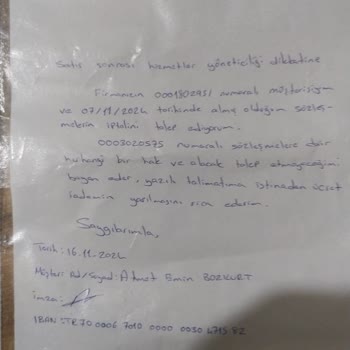 Satış sonrası hizmetler yöneticiliği dikkatine
Firmanızın 0001802951 numaralı müşterisiyim
ve 07/11/2024 tarihinde almış olduğum sözleş-
melerin iptalini talep ediyorum.
0003020575 numaralı sözleşmelere dair
herhangi bir hak ve alacak talep etmeyeceğimi
beyan eder, yazılı talimatıma istinaden ücret
iademin yapılmasını rica ederim.
Saygılarımla,
Tarih: 16.11.2024
Müşteri Ad/Soyad: Ahmet Emin BOZKURT
İmza:
IBAN: TR70 0006 7010 0000 0030 4715 82